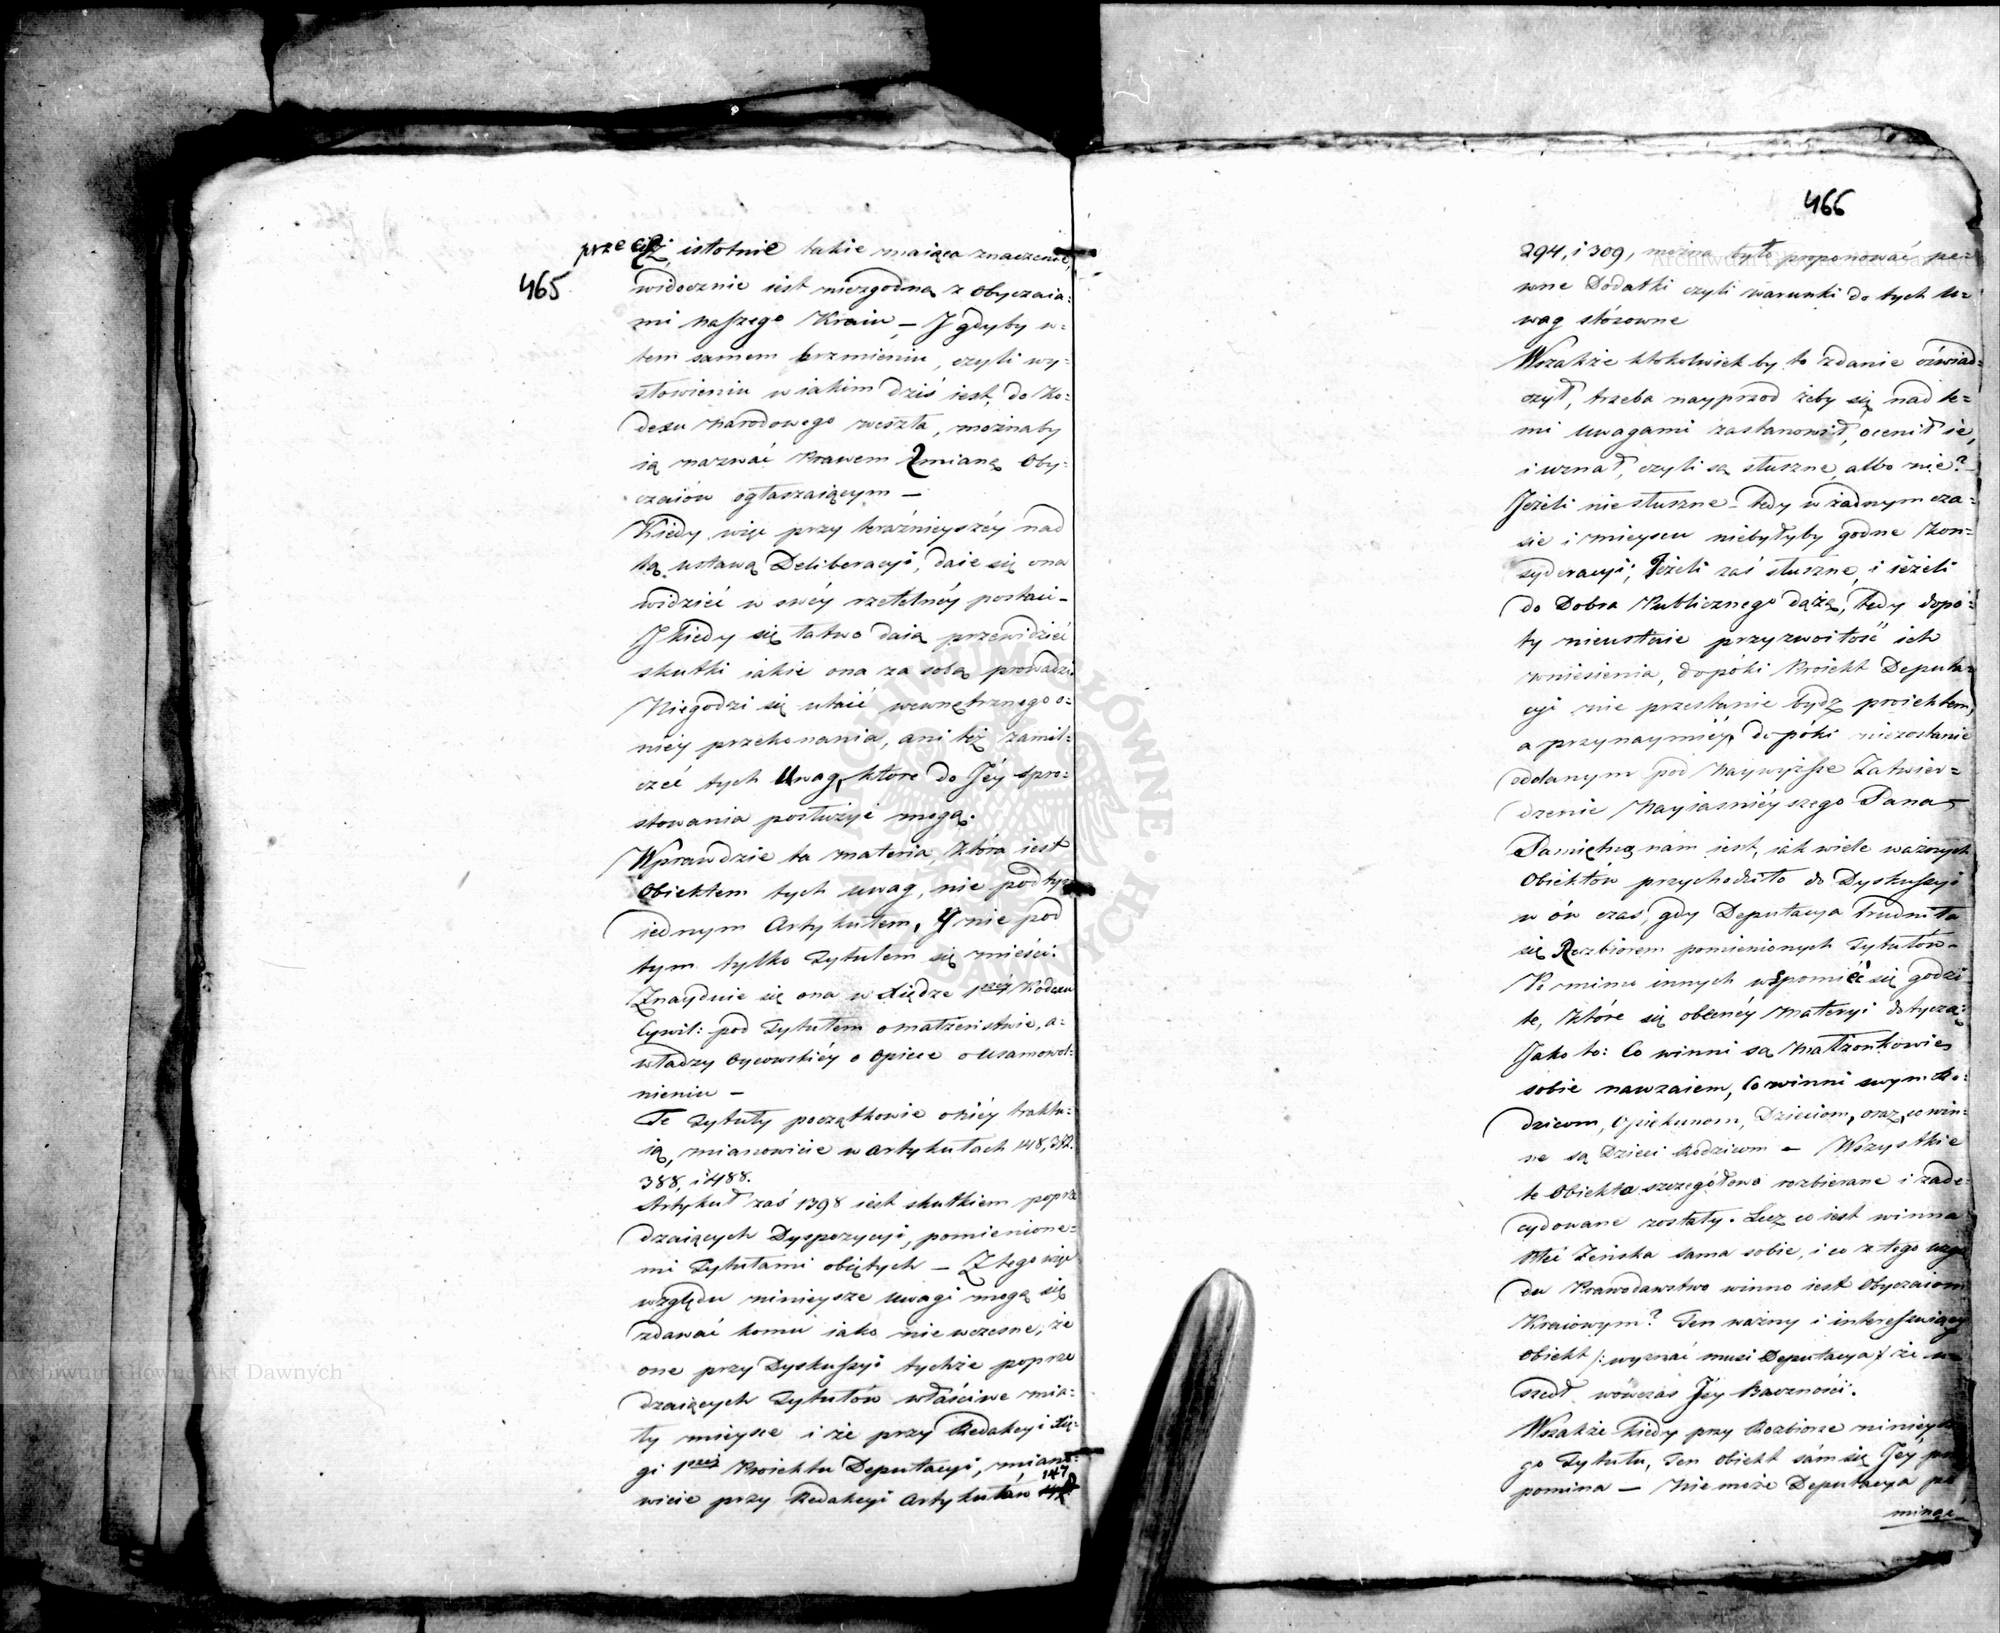 465
przecięż, istotnie takie maiąca znaczenie,
widocznie iest niezgodną z Obyczaia:
mi naszego Kraiu – J gdyby w:
tem samem brzmieniu, czyli wy:
słowieniu w iakim dziś iest, do Ko:
dexu Narodowego weszła, możnaby
ią nazwać Prawem Zmianę Oby:
czaiów ogłaszaiącym –
Kiedy więc przy teraźnieyszéy nad
tą ustawą Deliberacyi, daie się ona
widzieć w swéy rzetelnéy postaci –
J kiedy się łatwo daią przewidzieć
skutki iakie ona za sobą prowadzi
Niegodzi się utaić wewnętrznego o:
niéy przekonania, ani też zamil:
czeć tych Uwag, które do Jéy spro:
stowania posłużyć mogą.
Wprawdzie ta materia, która iest
Obiektem tych uwag, nie pod tym
iednym Artykułem, y nie pod
tym tylko Tytułem się mieści:
Znayduie się ona w Xiędze 1széy Kodexu
Cywil: pod Tytułem o małżeństwie, o:
władzy Oycowskiéy o Opiece o Usamowol:
nieniu –
Te Tytuły początkowie o niéy traktu:
ią, mianowicie w Artykułach 148, 372.
388, i 488.
Artykuł zaś 1398 iest skutkiem poprze
dzaiących Dyspozycyi, pomienione:
mi Tytułami obiętych – Z tego więc
względu ninieysze Uwagi mogą się
zdawać komu iako nie wczesne, że
one przy Dyskussyi tychże poprze
dzaiących Tytułów właściwe mia:
ły mieysce i że przy Redakcyi Xię:
gi 1széy Proiektu Deputacyi, miano:
wicie przy Redakcyi Artykułów 147
466
294, i 309, można było proponować pe:
wne Dodatki czyli warunki do tych U:
wag stósowne
Wszakże ktokolwiek by to zdanie oświad:
czył, trzeba nayprzod żeby się nad te:
mi uwagami zastanowił, ocenił ie,
i uznał, czyli są słuszne, albo nie?
Jeżeli niesłuszne – tedy w żadnym cza:
sie i mieyscu niebyłyby godne Kon:
syderacyi; Jeżeli zaś słuszne, i ieżeli
do Dobra Publicznego dążą, tedy dopó:
ty nieustaie przyzwoitość ich
wniesienia, dopóki Proiekt Deputa:
cyi nie przestanie bydź proiektem,
a przynaymniéy dopóki niezostanie
oddanym pod Naywyższe Zatwier:
dzenie Nayiaśniéyszego Pana –
Pamiętno nam iest, iak wiele ważnych
Obiektów przychodziło do Dyskussyi
w ów czas, gdy Deputacya trudniła
się Rozbiorem pomienionych Tytułów –
Pomimo innych wspomnieć się godzi
te, które się obecnéy Materyi dotyczą:
Jako to: Co winni są Małżonkowie
sobie nawzaiem, Co winni swym Ro:
dzicom, Opiekunom, Dzieciom, oraz, co win:
ne są Dzieci Rodzicom – Wszystkie
te Obiekta szczegółowo rozbierane i zade:
cydowane zostały. Lecz co iest winna
Płeć Żeńska sama sobie, i co z tego wzglę
du Prawodawstwo winno iest Obyczaiom
Kraiowym? Ten ważny i interessuiący
Obiekt /: wyznać musi Deputacya / że u
szedł wówczas Jéy Baczności.
Wszakże kiedy przy Rozbiorze ninieysze
go Tytułu, Ten Obiekt sam się Jéy przy
pomina – Nie może Deputacya po
minąć